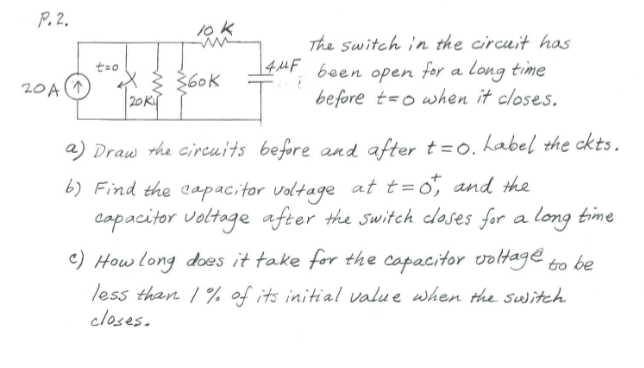 P.2.
10 K
t=0
20A
20K
60K
4µF
The switch in the circuit has
been open for a long time
before t=0 when it closes.
a) Draw the circuits before and after t=0. Label the ckts.
b) Find the capacitor voltage at t=0⁺, and the
capacitor voltage after the switch closes for a long time
c) How long does it take for the capacitor voltage to be
less than 1% of its initial value when the switch
closes.